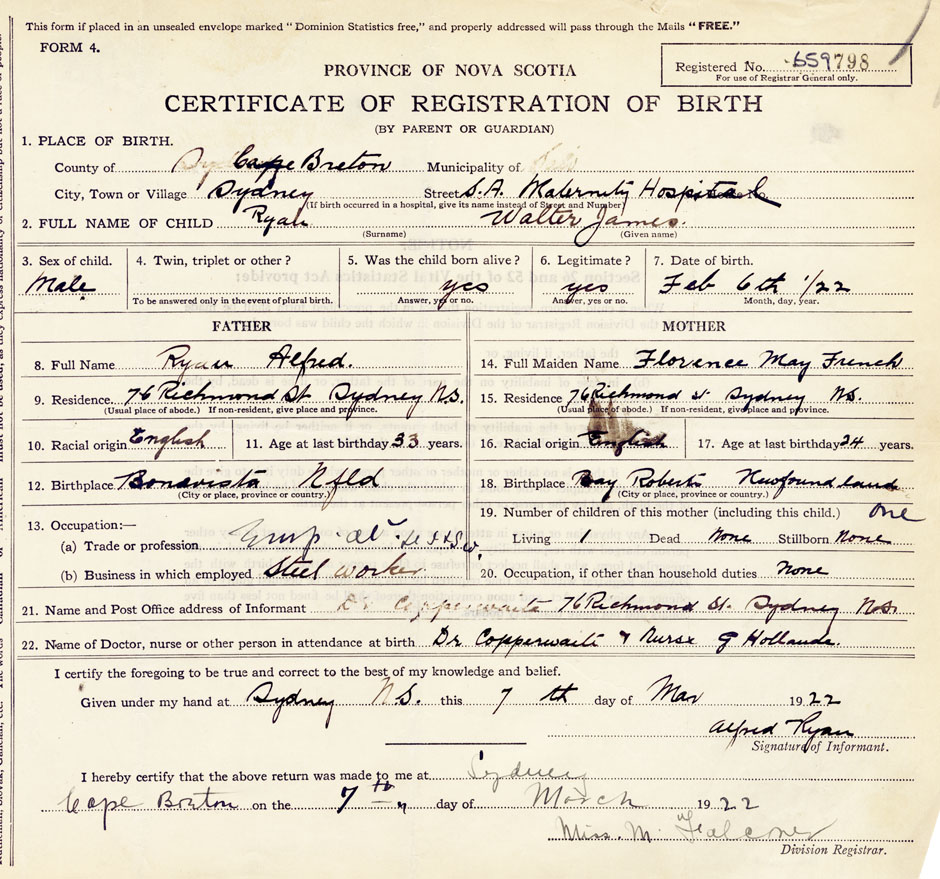 This form if placed in an unsealed envelope marked "Dominion Statistics free," and properly addressed will pass through the Mails "FREE."
FORM 4.
Registered No. 659798
For use of Registrar General only.
PROVINCE OF NOVA SCOTIA
CERTIFICATE OF REGISTRATION OF BIRTH
(BY PARENT OR GUARDIAN)
1. PLACE OF BIRTH.
County of Cape Breton Municipality of
City, Town or Village Sydney Street S.A. Maternity Hospital
(If birth occurred in a hospital, give its name instead of Street and Number)
2. FULL NAME OF CHILD Ryan Walter James.
(Surname) (Given name)
3. Sex of child. 4. Twin, triplet or other? 5. Was the child born alive? 6. Legitimate? 7. Date of birth.
Male yes yes Feb 6th 1/22
To be answered only in the event of plural birth. Answer, yes or no. Answer, yes or no. Month, day, year.
FATHER MOTHER
8. Full Name Ryan Alfred. 14. Full Maiden Name Florence May French
9. Residence. 76 Richmond St Sydney N.S. 15. Residence 76 Richmond St Sydney NS.
(Usual place of abode.) If non-resident, give place and province. (Usual place of abode.) If non-resident, give place and province.
10. Racial origin English 11. Age at last birthday 33 years. 16. Racial origin English 17. Age at last birthday 24 years.
12. Birthplace Bonavista Nfld 18. Birthplace Bay Roberts Newfoundland
(City or place, province or country.) (City or place, province or country.)
13. Occupation:— 19. Number of children of this mother (including this child.) one
(a) Trade or profession Emp. at Living 1 Dead None Stillborn None
(b) Business in which employed Steel worker 20. Occupation, if other than household duties None
21. Name and Post Office address of Informant Dr Copperwaite 76 Richmond St. Sydney N.S.
22. Name of Doctor, nurse or other person in attendance at birth Dr Copperwaite & Nurse G Hollands.
I certify the foregoing to be true and correct to the best of my knowledge and belief.
Given under my hand at Sydney N.S. this 7 th day of Mar 1922
Alfred Ryan
Signature of Informant.
I hereby certify that the above return was made to me at Sydney
Cape Breton on the 7th day of March 1922
Miss. M. Falconer
Division Registrar.